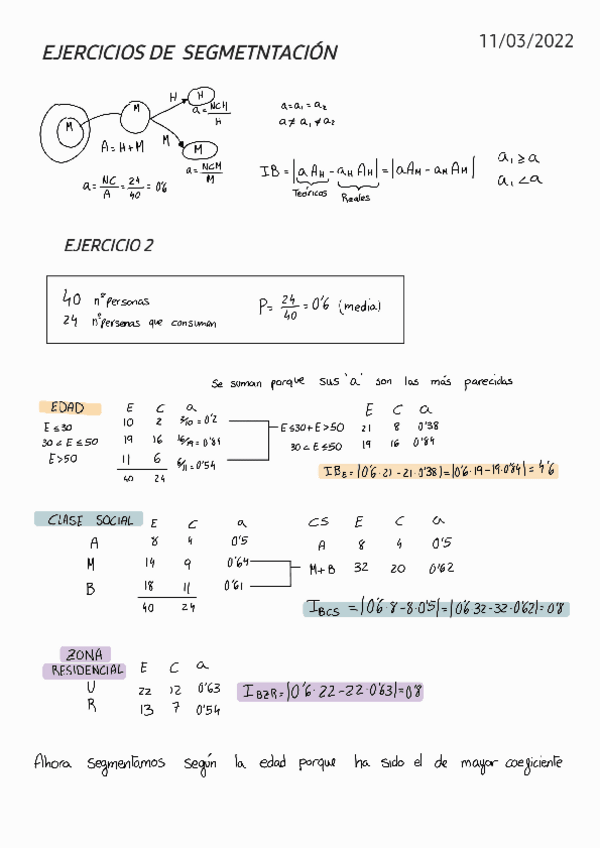 11/03/2022
EJERCICIOS DE SEGMETNTACIÓN
M
M
A=H+M
a= NC/A = 24/40 = 0'6
H
H
a= NCH/H
M
M
a= NCM/M
a=a₁=a₂
a≠a₁≠a₂
IB=|aA_H - a_H A_H|=|aA_M - a_M A_M|
Teóricos Reales
a₁≥a
a₁<a
EJERCICIO 2
40 nº personas
24 nº personas que consumen
P= 24/40 = 0'6 (media)
Se suman porque sus 'a' son las más parecidas
EDAD E C a
E≤30 10 2 2/10=0'2
30<E≤50 19 16 16/19=0'84
E>50 11 6 6/11=0'54
40 24
E C a
E≤30+E>50 21 8 0'38
30<E≤50 19 16 0'84
IB_E=|0'6·21-21·0'38|=|0'6·19-19·0'84|=4'6
CLASE SOCIAL E C a
A 8 4 0'5
M 14 9 0'64
B 18 11 0'61
40 24
CS E C a
A 8 4 0'5
M+B 32 20 0'62
I_BCS=|0'6·8-8·0'5|=|0'6·32-32·0'62|=0'8
ZONA
RESIDENCIAL E C a
U 22 12 0'63
R 13 7 0'54
I_BZR=|0'6·22-22·0'63|=0'8
Ahora segmentamos según la edad porque ha sido el de mayor coeficiente